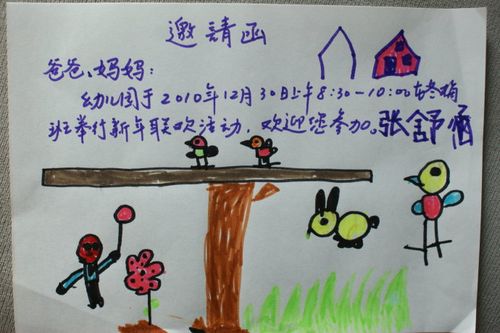 邀請函
爸爸、妈妈:
幼儿园于2010年12月30日上午8:30-10:00在
班举行新年联欢活动,欢迎您参加。张舒涵